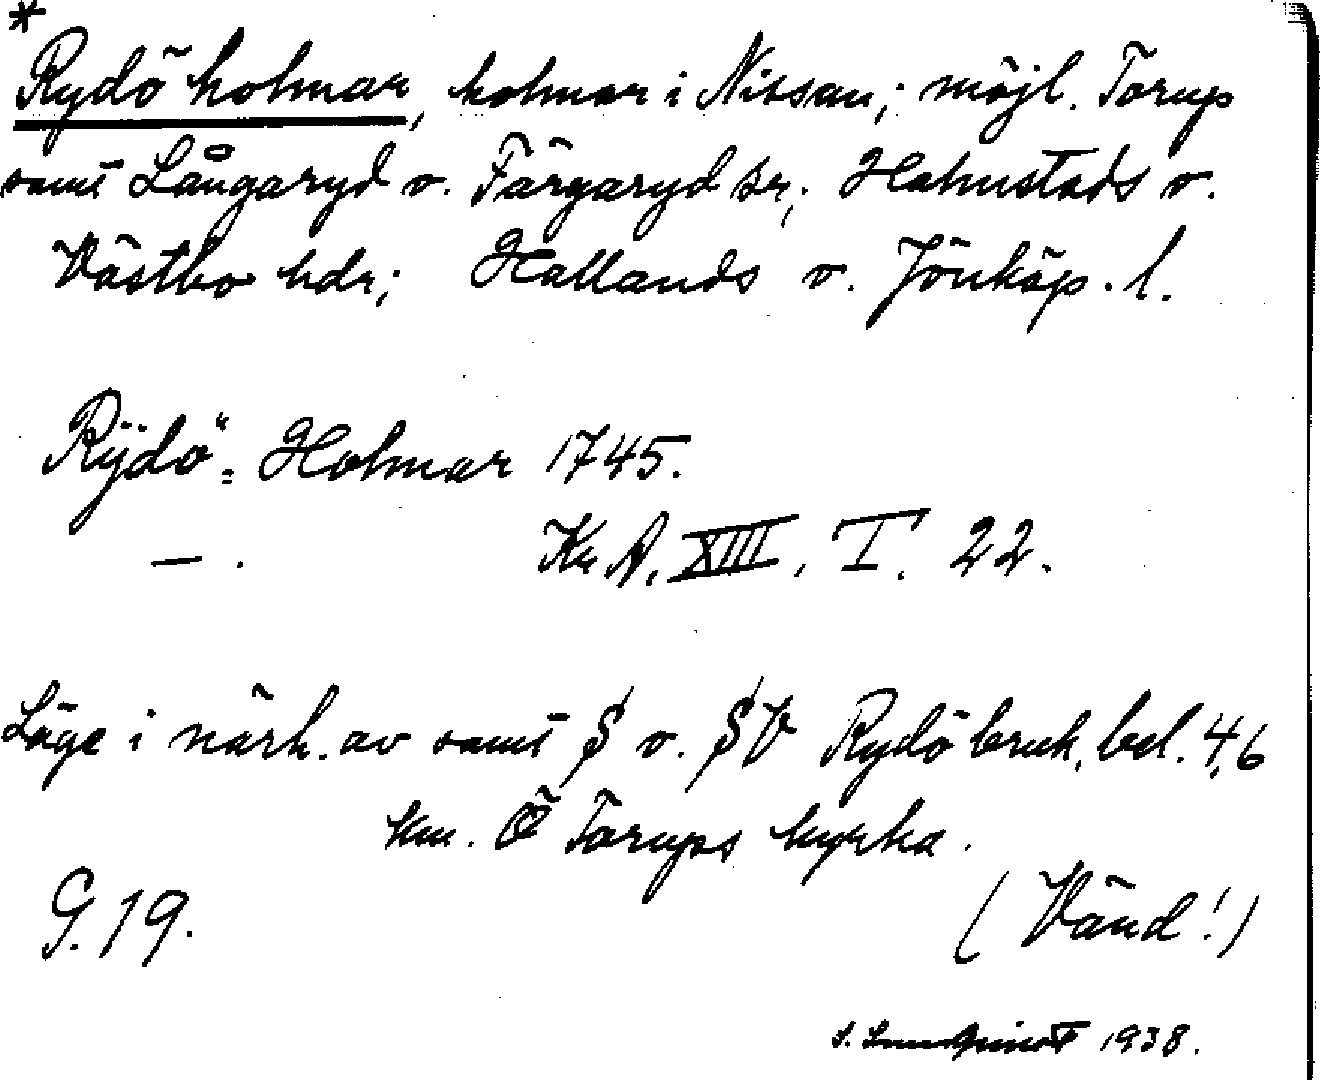 *
Rydö holmar, holmar i Nissan; möjl. Torup
samt Långaryd o. Färgaryd sr; Halmstads o.
Västbo hdr; Hallands o. Jönköp. l.
Rÿdö = Holmar 1745.
— . Kr A. XIII, I. 22.
Läge i närh. av samt S o. SV Rydö bruk, bel. 4,6
km. Ö Torups kyrka.
G. 19. (Vänd!)
S. 1938.